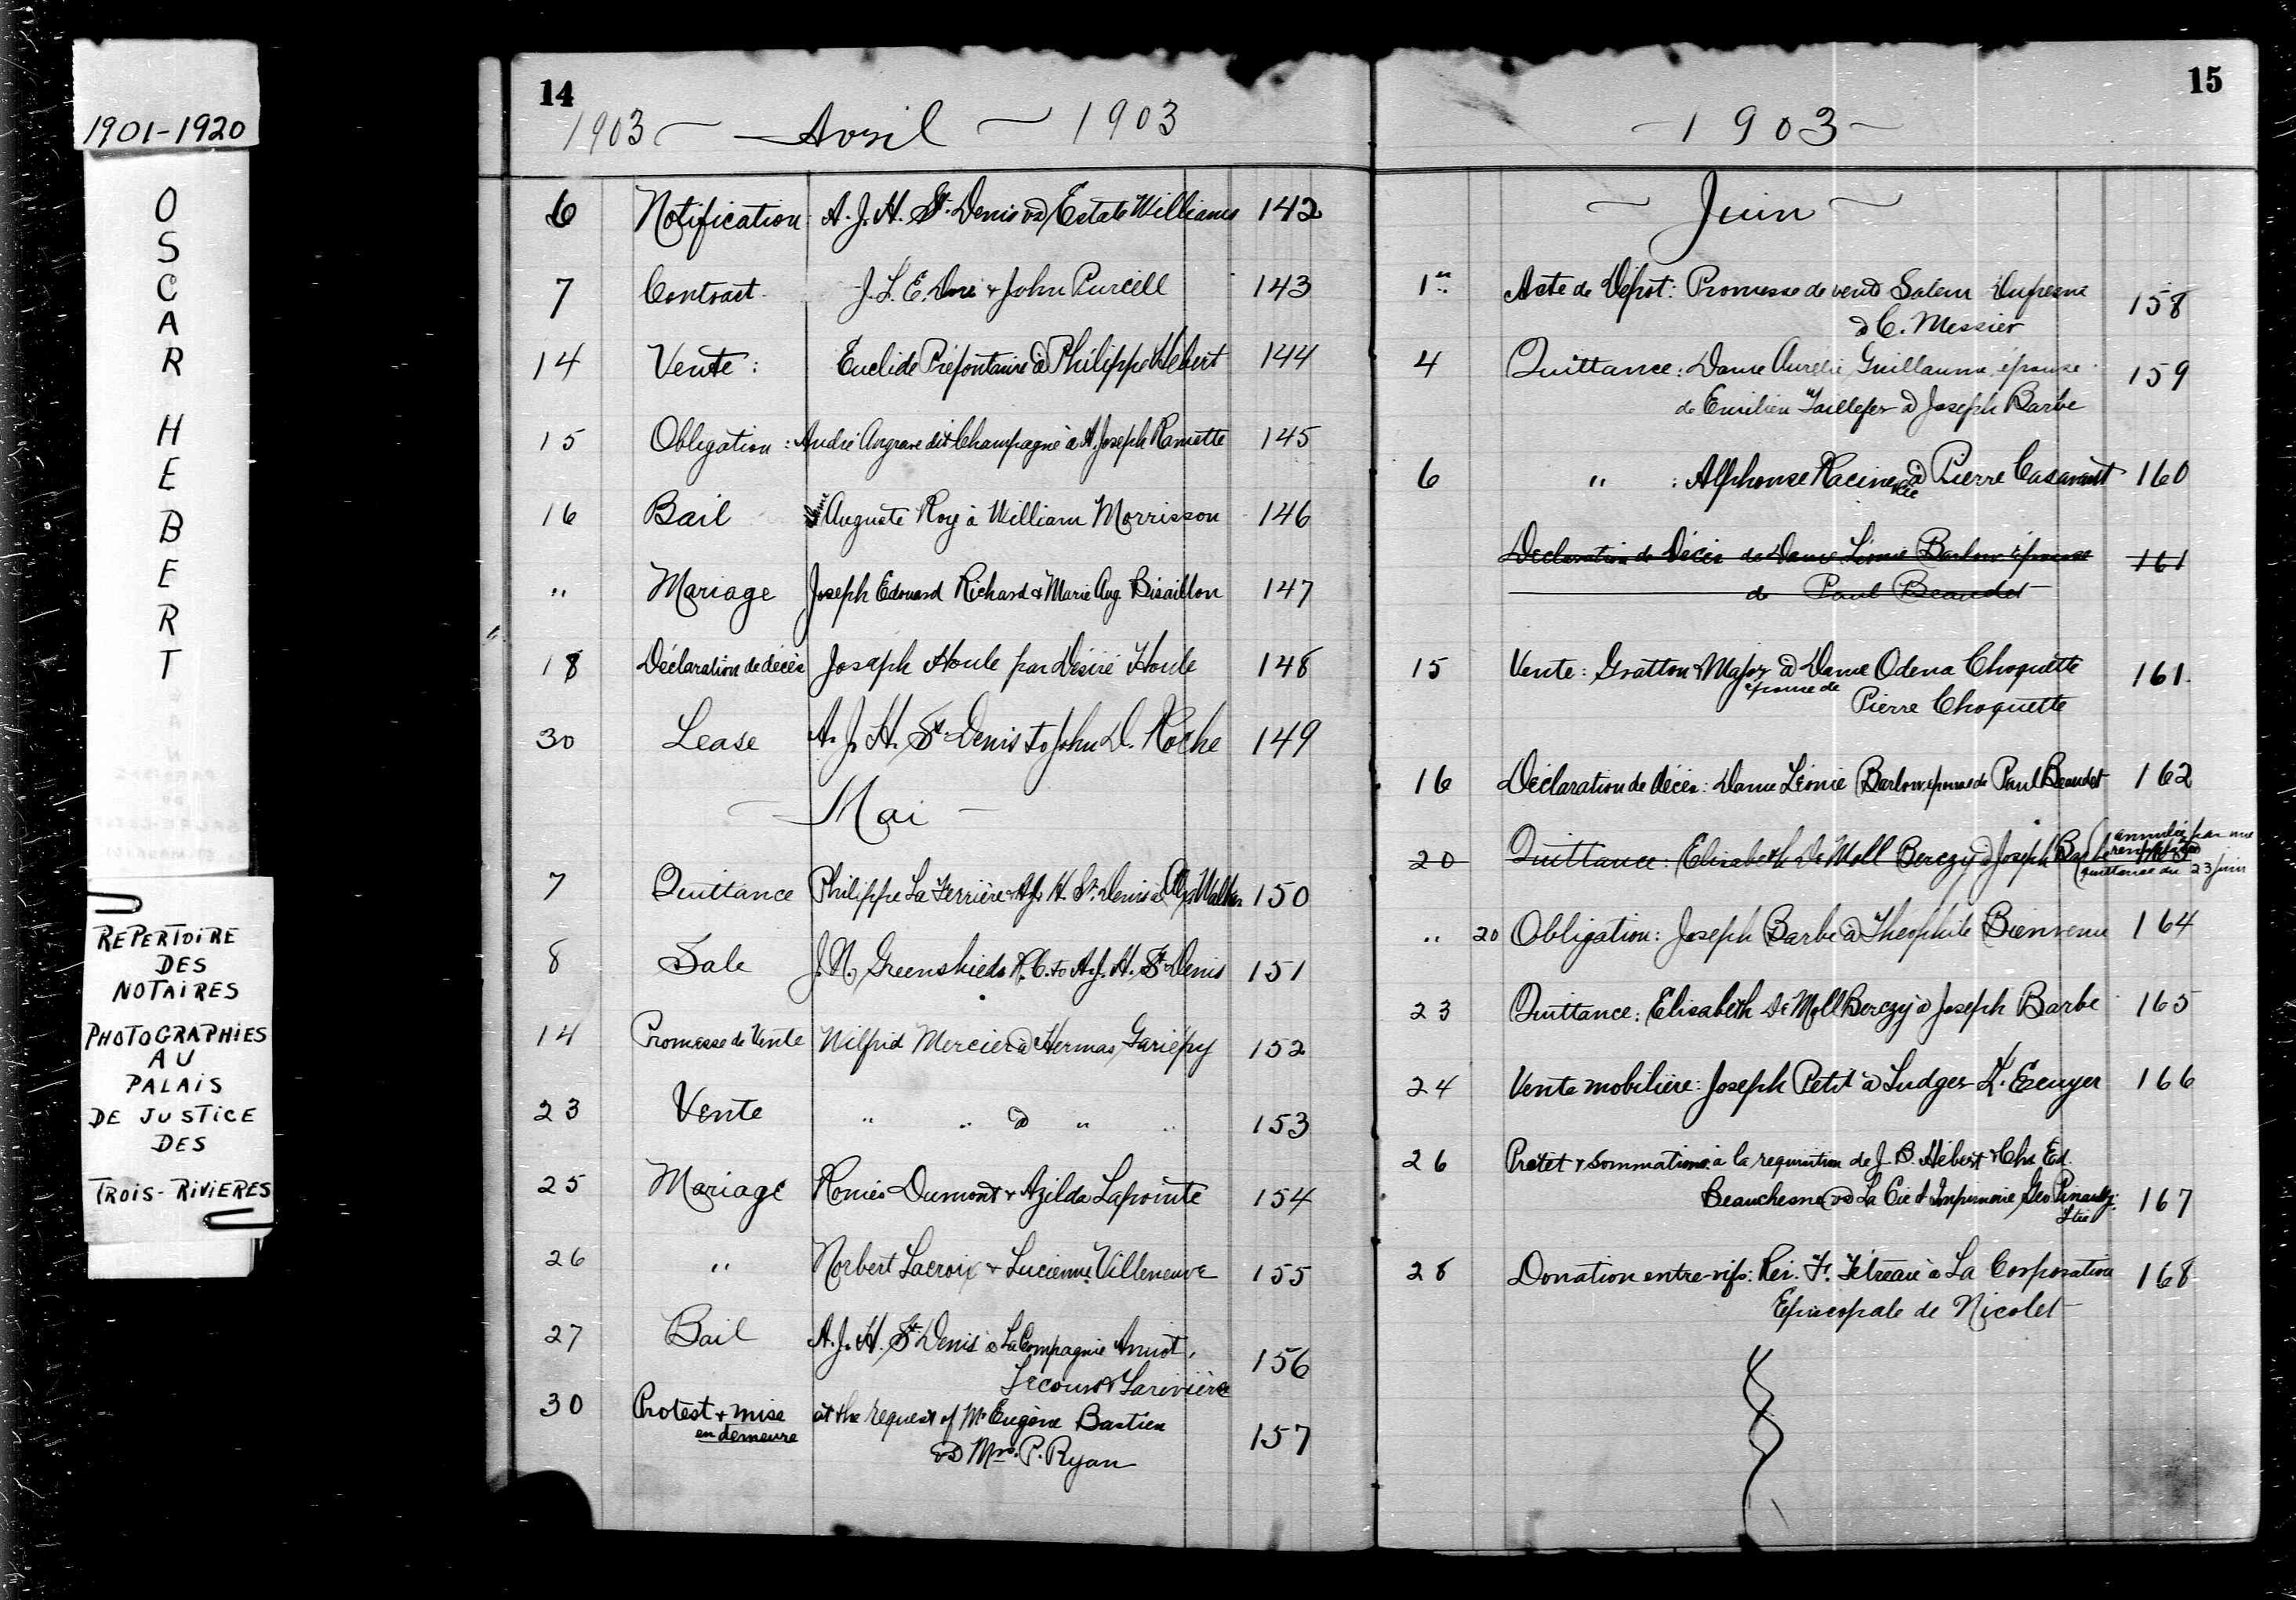 1901-1920
OSCAR HEBERT
REPERTOIRE
DES
NOTAIRES
PHOTOGRAPHIES
AU
PALAIS
DE JUSTICE
DES
TROIS-RIVIERES
14
1903 Avril 1903
6 Notification A. J. H. St. Denis vs Estate Williams 142
7 Contract J. L. E. Doré & John Purcell 143
14 Vente: Euclide Préfontaine à Philippe Hébert 144
15 Obligation: André dit Champagne à A. Joseph Ramette 145
16 Bail Auguste Roy à William Morrisson 146
" Mariage Joseph Edouard Richard & Marie Aug. Bisaillon 147
18 Déclaration de décès Joseph Houle par Désiré Houle 148
30 Lease A. J. H. St. Denis to John D. Roche 149
Mai
7 Quittance Philippe La Ferrière & A. J. H. St. Denis à Walker 150
8 Sale J. N. Greenshields K.C. to A. J. H. St. Denis 151
14 Promesse de Vente Wilfrid Mercier à Hermas Gariépy 152
23 Vente " " à " " 153
25 Mariage Roméo Dumont & Azilda Lapointe 154
26 " Norbert Lacroix & Lucienne Villeneuve 155
27 Bail A. J. H. St Denis à La Compagnie Amiot,
Lecours & Larivière 156
30 Protest & mise at the request of Mr Eugène Bastien
en demeure vs Mrs. P. Ryan 157
15
1903
Juin
1er Acte de Dépot: Promesse de vend Salem Dufresne
à C. Messier 158
4 Quittance: Dame Aurélie Guillaume, épouse
de Emilien Taillefer à Joseph Barbe 159
6 " : Alphonse Racine à Pierre Casavant 160
Declaration de Décès de Dame Léonie Barlow épouse 161
de Paul Beaudet
15 Vente: Gratton & Major à Dame Odena Choquette
épouse de Pierre Choquette 161
16 Déclaration de décès: Dame Léonie Barlow, épouse de Paul Beaudet 162
20 Quittance: Elisabeth De Moll Berczy à Joseph Barbe (annulée par une
quittance du 23 juin
" 20 Obligation: Joseph Barbe à Théophile Bienvenu 164
23 Quittance: Elisabeth De Moll Berczy à Joseph Barbe 165
24 Vente mobilière: Joseph Petit à Ludger L. Ecuyer 166
26 Protêt & sommation: à la requisition de J. B. Hébert & Chs Ed.
Beauchesne vs La Cie d'Imprimerie Geo 167
Ltée
28 Donation entre-vifs: Rév. F. Tétreau à La Corporation
Episcopale de Nicolet 168